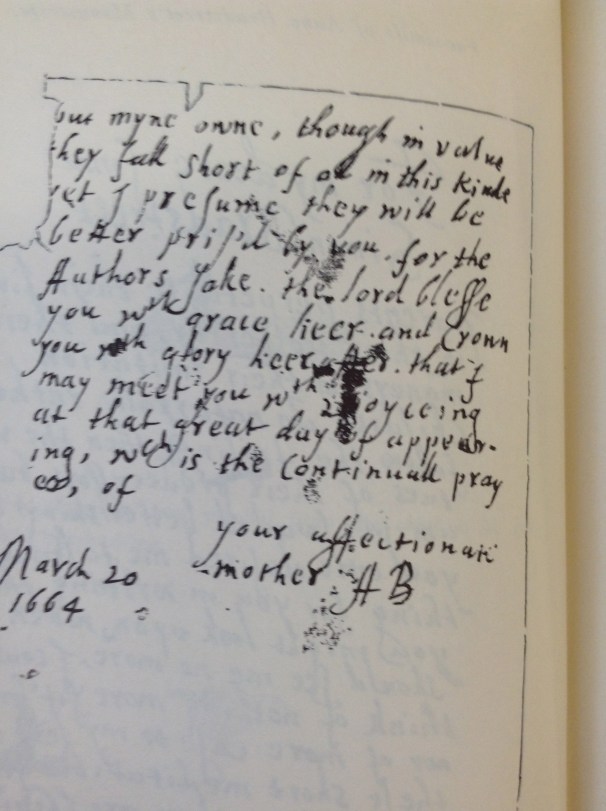 but myne owne, though in value
they fall short of all in this kinde
yet I presume they will be
better pris'd by you, for the
Authors sake. the lord blesse
you wth grace heer and crown
you wth glory heerafter. that I
may meet you wth rejoyceing
at that great day of appear-
ing, wch is the continuall pray
er, of
your affectionate
mother A B
March 20
1664